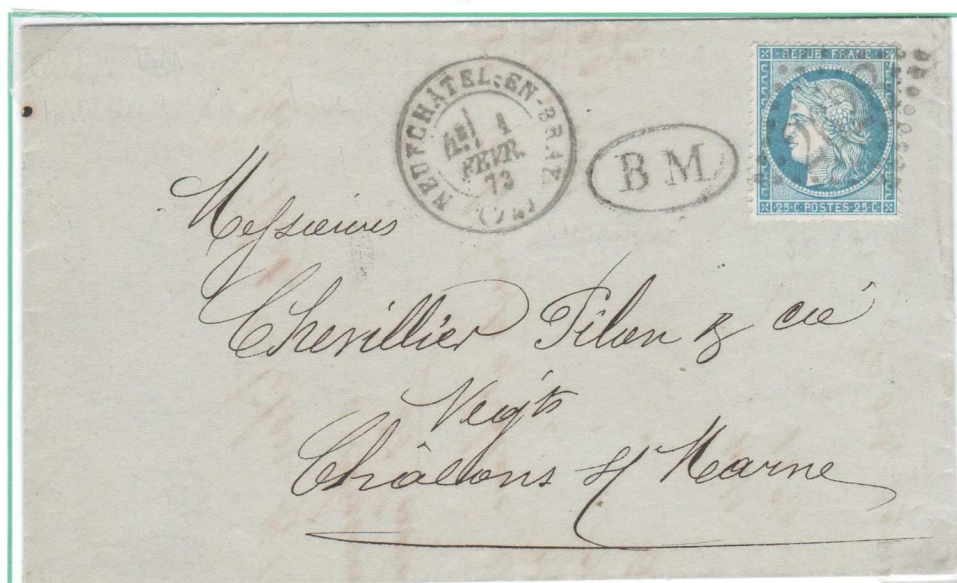 NEUFCHÂTEL-EN-BRAY
1
FEVR.
73
(74)
B M
REPUB FRANC
25·C POSTES 25·C·
Messieurs
Chevillier Pilon & cie
Négts
Châlons s/ Marne